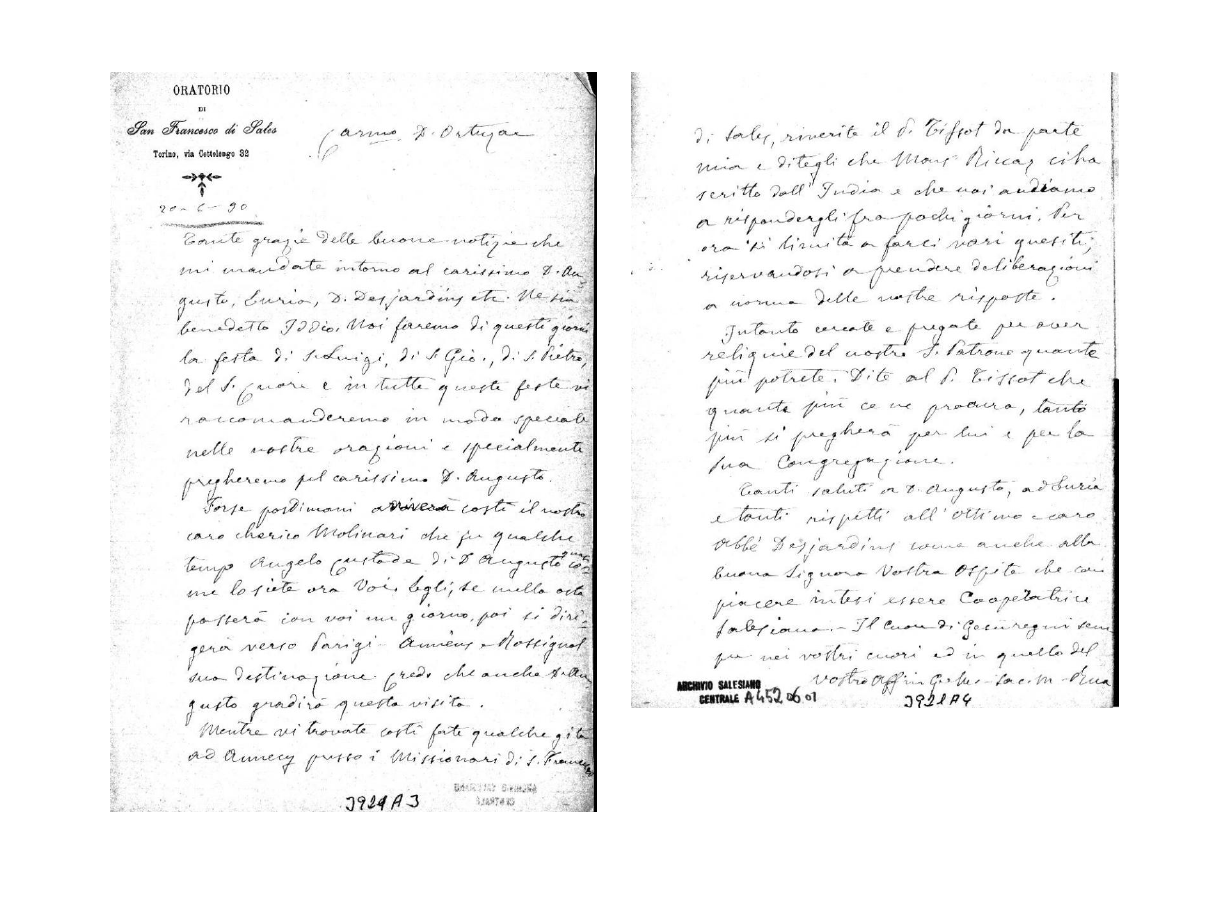 ORATORIO
DI
San Francesco di Sales
Torino, via Cottolengo 32
Carmo D. Ortuzar
20-6-90
Tante grazie delle buone notizie che
mi mandate intorno al carissimo D. Au
gusto, Luria, D. Desjardins etc. Ne sia
benedetto Iddio. Noi faremo di questi giorni
la festa di S. Luigi, di S. Gio., di S. Pietro,
del S. Cuore e in tutte queste feste vi
raccomanderemo in modo speciale
nelle nostre orazioni e specialmente
pregheremo pel carissimo D. Augusto.
Forse posdimani arriverà costì il nostro
caro cherico Molinari che fu qualche
tempo Angelo Custode di D. Augusto co-
me lo siete ora Voi. Egli, se nulla osta
passerà con voi un giorno, poi si diri-
gerà verso Parigi - Amiens e Rossignol
sua destinazione. Credo che anche D. Au
gusto gradirà questa visita.
Mentre vi trovate costì fate qualche gita
ad Annecy presso i Missionari di S. Francesco
J924A3
di Sales, riverite il P. Tissot da parte
mia e ditegli che Mons. Riccaz ci ha
scritto dall'India e che noi andiamo
a rispondergli fra pochi giorni. Per
ora si limita a farci vari quesiti,
riservandosi a prendere deliberazioni
a norma delle nostre risposte.
Intanto cercate e pregate per aver
reliquie del nostro S. Patrone quante
più potrete. Dite al P. Tissot che
quante più ce ne procura, tanto
più si pregherà per lui e per la
sua Congregazione.
Tanti saluti a D. Augusto, ad Luria
e tanti rispetti all'ottimo e caro
Abbé Desjardins come anche alla
buona Signora Vostra Ospite che con
piacere intesi essere Cooperatrice
Salesiana. - Il Cuor di Gesù regni sem
pre nei vostri cuori ed in quello del
Vostro Aff. in G. e M. Sac. M. Rua
ARCHIVIO SALESIANO
CENTRALE A4520601
3924A4